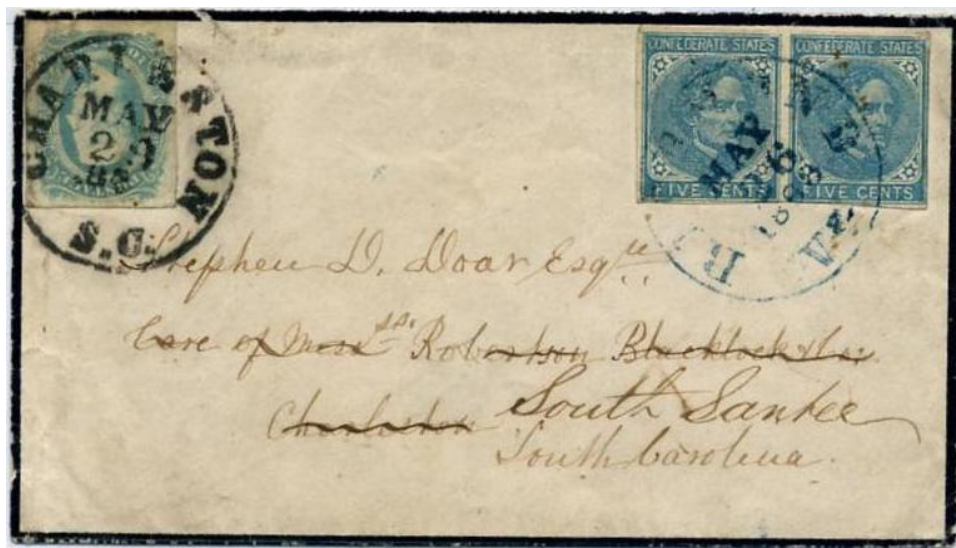 CHARLESTON
MAY
2
S.C.
CONFEDERATE STATES
FIVE CENTS
CONFEDERATE STATES
FIVE CENTS
MAY
6
VA.
Stephen D. Doar Esqre
Care of Messrs. Robertson Blacklock & Co.
Charleston South Santee
South Carolina.